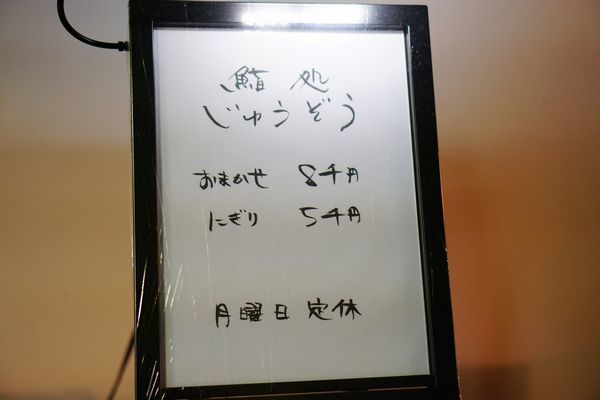 鮨 処
じゅうぞう
おまかせ 8千円
にぎり 5千円
月曜日 定休